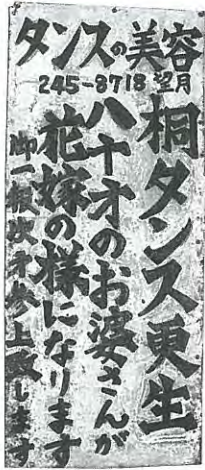 タンスの美容
245-8718 望月
桐タンス更生
八十才のお婆さんが
花嫁の様になります
御一報次才参上致します